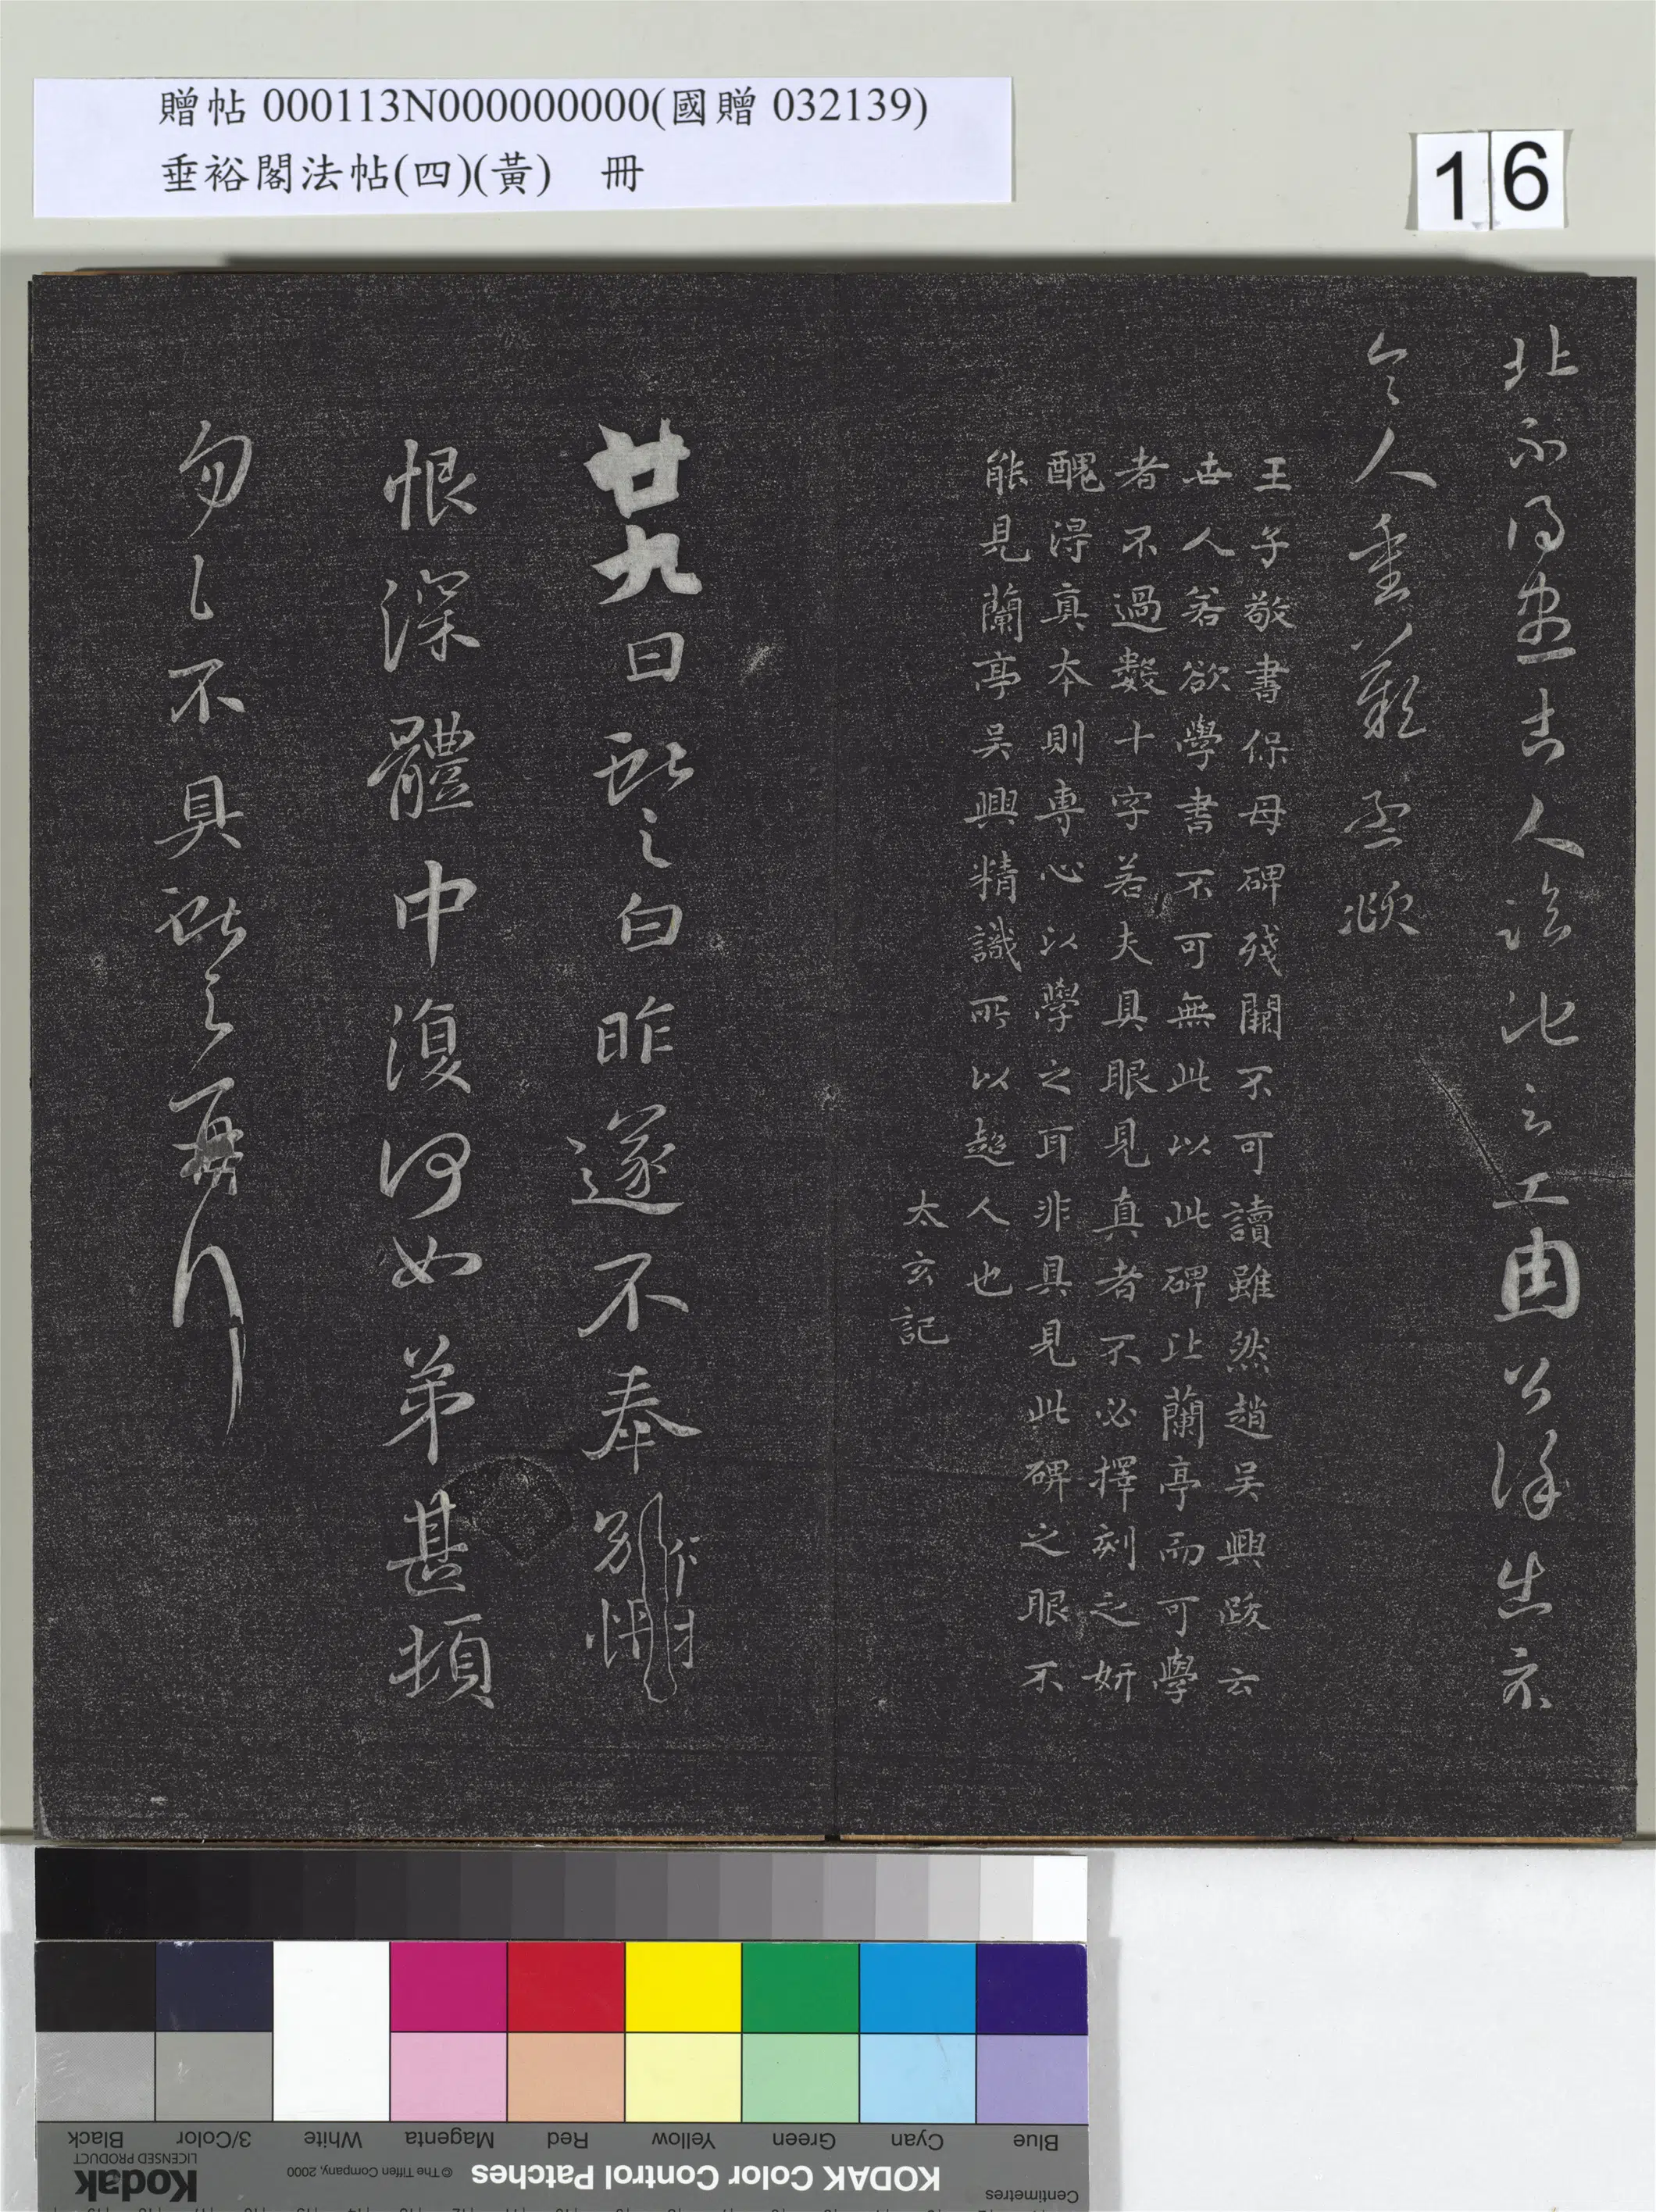 贈帖 000113N000000000(國贈 032139)
垂裕閣法帖(四)(黃) 冊
16
人
今人重
王子敬書保母碑殘闕不可讀雖然趙吳興跋云
世人若欲學書不可無此以此碑比蘭亭而可學
者不過數十字若夫具眼見真者不必擇刻之妍
醜淂真本則專心以學之耳非具見此碑之眼不
能見蘭亭吳興精識所以超人也
太玄記
廿九日獻之白昨遂不奉別悵
恨深體中復何如弟甚頓
匆匆不具獻之再拜
Black
3/Color
White
Magenta
Red
Yellow
Green
Cyan
Blue
Kodak
LICENSED PRODUCT
© The Tiffen Company, 2000
KODAK Color Control Patches
Centimetres